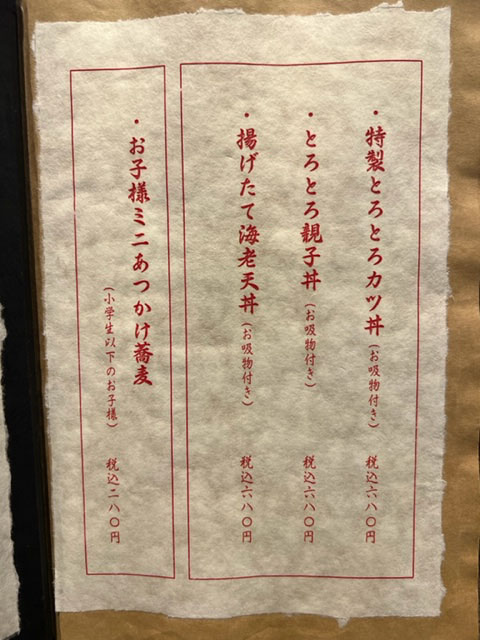 ・特製とろとろカツ丼(お吸物付き) 税込六八〇円
・とろとろ親子丼(お吸物付き) 税込六八〇円
・揚げたて海老天丼(お吸物付き) 税込六八〇円
・お子様ミニあつかけ蕎麦
(小学生以下のお子様) 税込二八〇円